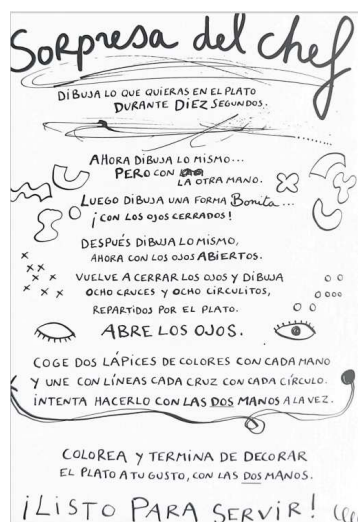 Sorpresa del chef
DIBUJA LO QUE QUIERAS EN EL PLATO
DURANTE DIEZ SEGUNDOS.
AHORA DIBUJA LO MISMO...
PERO CON
LA OTRA MANO.
LUEGO DIBUJA UNA FORMA Bonita...
¡CON LOS OJOS CERRADOS!
DESPUÉS DIBUJA LO MISMO,
AHORA CON LOS OJOS ABIERTOS.
VUELVE A CERRAR LOS OJOS Y DIBUJA
OCHO CRUCES Y OCHO CIRCULITOS,
REPARTIDOS POR EL PLATO.
ABRE LOS OJOS.
COGE DOS LÁPICES DE COLORES CON CADA MANO
Y UNE CON LÍNEAS CADA CRUZ CON CADA CÍRCULO.
INTENTA HACERLO CON LAS DOS MANOS A LA VEZ.
COLOREA Y TERMINA DE DECORAR
EL PLATO A TU GUSTO, CON LAS DOS MANOS.
¡LISTO PARA SERVIR!